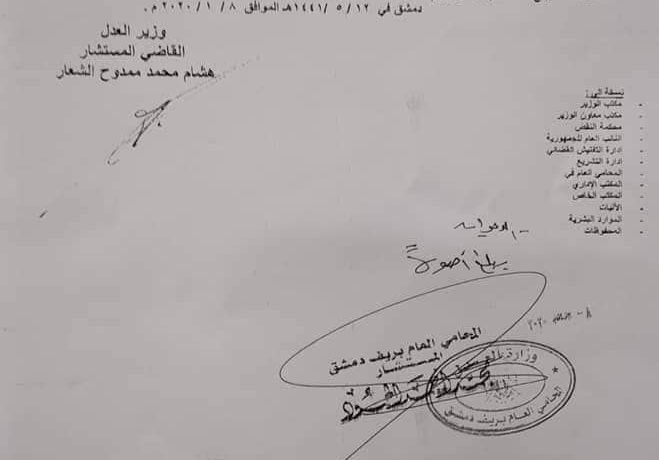 دمشق في ١٢ / ٥ / ١٤٤١هـ الموافق ٨ / ١ / ٢٠٢٠ م .
وزير العدل
القاضي المستشار
هشام محمد ممدوح الشعار
نسخة إلى:
- مكتب الوزير
- مكتب معاون الوزير
- محكمة النقض
- النائب العام للجمهورية
- ادارة التفتيش القضائي
- ادارة التشريع
- المحامي العام في
- المكتب الإداري
- المكتب الخاص
- الآليات
- الموارد البشرية
- المحفوظات
يبلغ أصولاً
المحامي العام بريف دمشق
المستشار
وزارة العدل
المحامي العام بريف دمشق